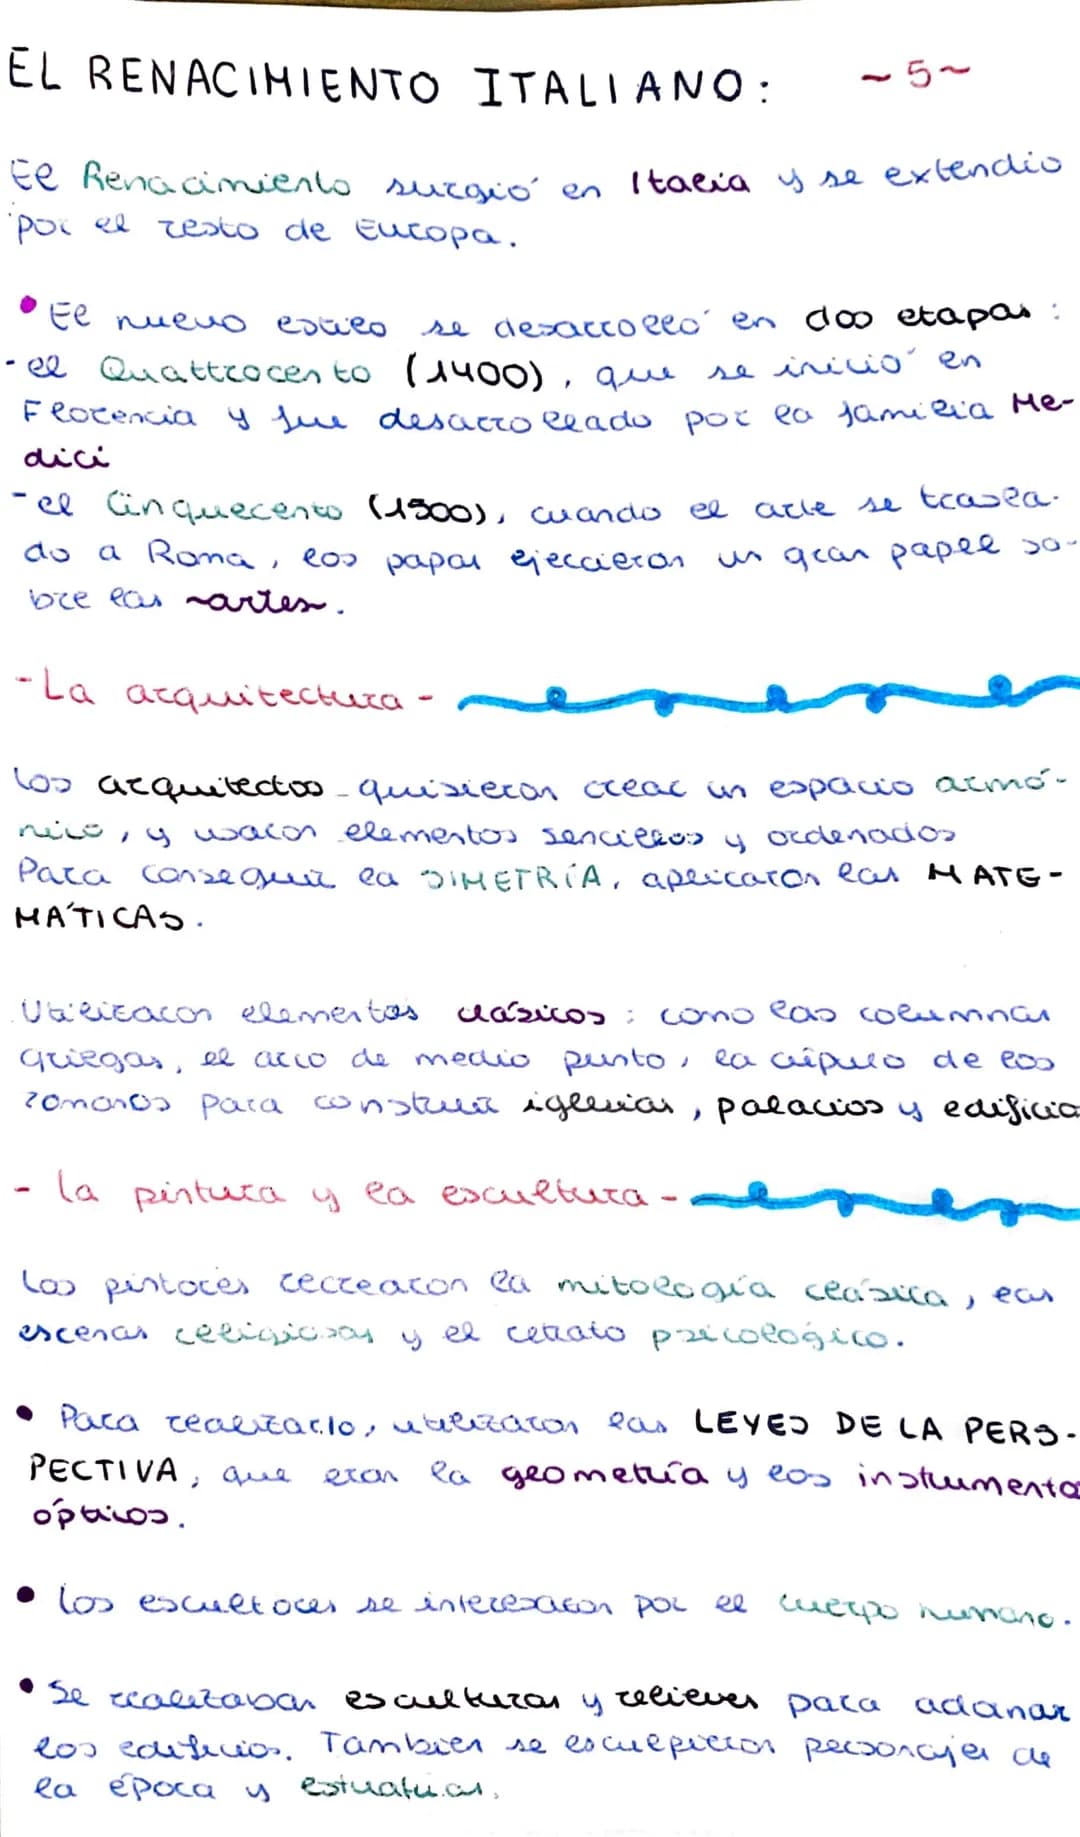 EL RENACIMIENTO ITALIANO: ~5~
El Renacimiento surgió en Italia y se extendio
por el resto de Europa.
• El nuevo estilo se desarrolló en dos etapas:
- el Quattrocento (1400), que se inició en
Florencia y fue desarrollado por la familia Me-
dici
- el Cinquecento (1500), cuando el arte se trasla-
do a Roma, los papas ejercieron un gran papel so-
bre las artes.
- La arquitectura -
Los arquitectos quisieron crear un espacio armó-
nico, y usaron elementos sencillos y ordenados
Para conseguir la SIMETRÍA, aplicaron las MATE-
MÁTICAS.
Utilizaron elementos clásicos: como las columnas
griegas, el arco de medio punto, la cúpula de los
romanos para construir iglesias, palacios y edificio
- La pintura y la escultura -
Los pintores recrearon la mitología clásica, las
escenas religiosas y el retrato psicológico.
• Para realizarlo, utilizaron las LEYES DE LA PERS-
PECTIVA, que eran la geometría y los instrumento
ópticos.
• Los escultores se interesaron por el cuerpo humano.
• Se realizaban esculturas y relieves para adornar
los edificios. Tambien se esculpieron personajes de
la época y estuatuas.